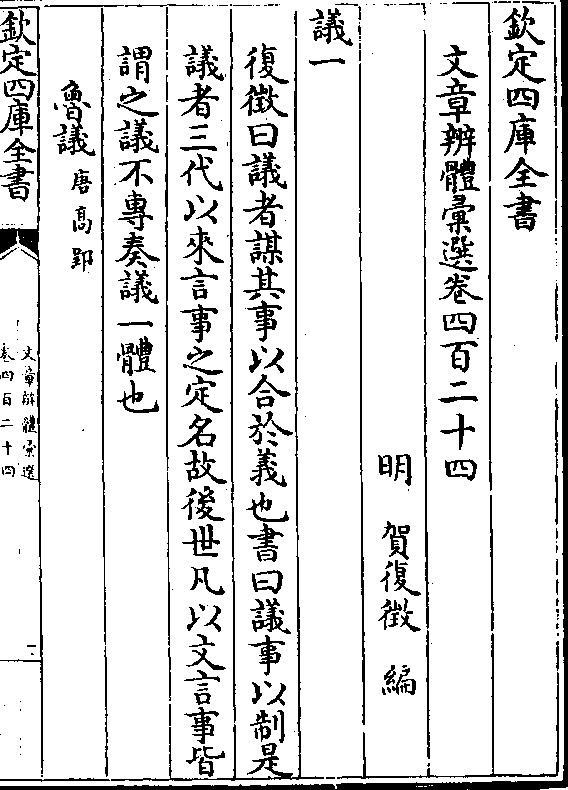 欽定四庫全書
文章辨體彚選卷四百二十四
明 賀復徵 編
議一
復徵曰議者謀其事以合於義也書曰議事以制是
議者三代以來言事之定名故後世凡以文言事皆
謂之議不專奏議一體也
魯議 唐高郢
欽定四庫全書
文章辨體彚選
卷四百二十四
一